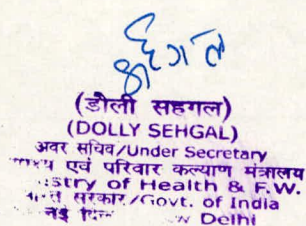 सहगल
(डौली सहगल)
(DOLLY SEHGAL)
अवर सचिव/Under Secretary
एवं परिवार कल्याण मंत्रालय
stry of Health & F.W.
सरकार/Govt. of India
नई Delhi